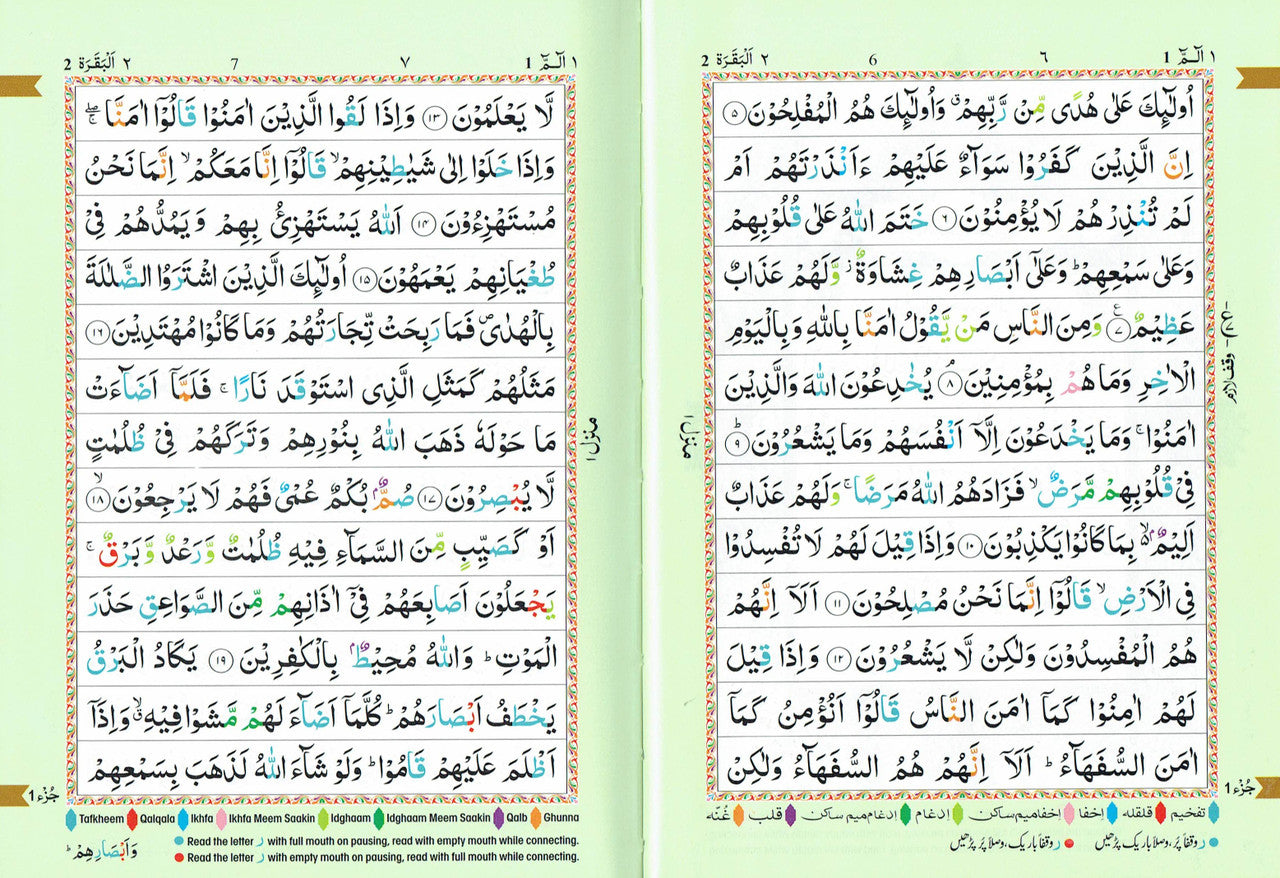 ١ الٓمّٓ 1
٦
6
٢ اَلْبَقَرَة 2
اُولٰٓئِكَ عَلٰى هُدًى مِّنْ رَّبِّهِمْ ۗ وَاُولٰٓئِكَ هُمُ الْمُفْلِحُوْنَ ۝٥
اِنَّ الَّذِيْنَ كَفَرُوْا سَوَآءٌ عَلَيْهِمْ ءَاَنْذَرْتَهُمْ اَمْ
لَمْ تُنْذِرْهُمْ لَا يُؤْمِنُوْنَ ۝٦ خَتَمَ اللّٰهُ عَلٰى قُلُوْبِهِمْ
وَعَلٰى سَمْعِهِمْ ؕ وَعَلٰٓى اَبْصَارِهِمْ غِشَاوَةٌ ؗ وَّلَهُمْ عَذَابٌ
عَظِيْمٌ ۝٧ وَمِنَ النَّاسِ مَنْ يَّقُوْلُ اٰمَنَّا بِاللّٰهِ وَبِالْيَوْمِ
الْاٰخِرِ وَمَا هُمْ بِمُؤْمِنِيْنَ ۝٨ يُخٰدِعُوْنَ اللّٰهَ وَالَّذِيْنَ
اٰمَنُوْا ۚ وَمَا يَخْدَعُوْنَ اِلَّآ اَنْفُسَهُمْ وَمَا يَشْعُرُوْنَ ۝٩ؕ
فِيْ قُلُوْبِهِمْ مَّرَضٌ ۙ فَزَادَهُمُ اللّٰهُ مَرَضًا ۚ وَلَهُمْ عَذَابٌ
اَلِيْمٌۢ ۙ۬ بِمَا كَانُوْا يَكْذِبُوْنَ ۝١٠ وَاِذَا قِيْلَ لَهُمْ لَا تُفْسِدُوْا
فِي الْاَرْضِ ۙ قَالُوْٓا اِنَّمَا نَحْنُ مُصْلِحُوْنَ ۝١١ اَلَآ اِنَّهُمْ
هُمُ الْمُفْسِدُوْنَ وَلٰكِنْ لَّا يَشْعُرُوْنَ ۝١٢ وَاِذَا قِيْلَ
لَهُمْ اٰمِنُوْا كَمَآ اٰمَنَ النَّاسُ قَالُوْٓا اَنُؤْمِنُ كَمَآ
اٰمَنَ السُّفَهَآءُ ؕ اَلَآ اِنَّهُمْ هُمُ السُّفَهَآءُ وَلٰكِنْ
وقف لازم
منزل ١
جُزْء 1
تفخیم قلقلہ اِخفا اِخفا میم ساکن اِدغام اِدغام میم ساکن قلب غُنّہ
ر وقفاً پُر، وصلاً باریک پڑھیں
ر وقفاً باریک، وصلاً پُر پڑھیں
١ الٓمّٓ 1
٧
7
٢ اَلْبَقَرَة 2
لَّا يَعْلَمُوْنَ ۝١٣ وَاِذَا لَقُوا الَّذِيْنَ اٰمَنُوْا قَالُوْٓا اٰمَنَّا ۖۚ
وَاِذَا خَلَوْا اِلٰى شَيٰطِيْنِهِمْ ۙ قَالُوْٓا اِنَّا مَعَكُمْ ۙ اِنَّمَا نَحْنُ
مُسْتَهْزِءُوْنَ ۝١٤ اَللّٰهُ يَسْتَهْزِئُ بِهِمْ وَيَمُدُّهُمْ فِيْ
طُغْيَانِهِمْ يَعْمَهُوْنَ ۝١٥ اُولٰٓئِكَ الَّذِيْنَ اشْتَرَوُا الضَّلٰلَةَ
بِالْهُدٰى ۪ فَمَا رَبِحَتْ تِّجَارَتُهُمْ وَمَا كَانُوْا مُهْتَدِيْنَ ۝١٦
مَثَلُهُمْ كَمَثَلِ الَّذِى اسْتَوْقَدَ نَارًا ۚ فَلَمَّآ اَضَآءَتْ
مَا حَوْلَهٗ ذَهَبَ اللّٰهُ بِنُوْرِهِمْ وَتَرَكَهُمْ فِيْ ظُلُمٰتٍ
لَّا يُبْصِرُوْنَ ۝١٧ صُمٌّۢ بُكْمٌ عُمْيٌ فَهُمْ لَا يَرْجِعُوْنَ ۝١٨ۙ
اَوْ كَصَيِّبٍ مِّنَ السَّمَآءِ فِيْهِ ظُلُمٰتٌ وَّرَعْدٌ وَّبَرْقٌ ۚ
يَجْعَلُوْنَ اَصَابِعَهُمْ فِيْٓ اٰذَانِهِمْ مِّنَ الصَّوَاعِقِ حَذَرَ
الْمَوْتِ ؕ وَاللّٰهُ مُحِيْطٌۢ بِالْكٰفِرِيْنَ ۝١٩ يَكَادُ الْبَرْقُ
يَخْطَفُ اَبْصَارَهُمْ ؕ كُلَّمَآ اَضَآءَ لَهُمْ مَّشَوْا فِيْهِ ۙۗ وَاِذَآ
اَظْلَمَ عَلَيْهِمْ قَامُوْا ؕ وَلَوْ شَآءَ اللّٰهُ لَذَهَبَ بِسَمْعِهِمْ
منزل ١
جُزْء 1
Tafkheem Qalqala Ikhfa Ikhfa Meem Saakin Idghaam Idghaam Meem Saakin Qalb Ghunna
Read the letter ر with full mouth on pausing, read with empty mouth while connecting.
Read the letter ر with empty mouth on pausing, read with full mouth while connecting.
وَاَبْصَارِهِمْ ؕ